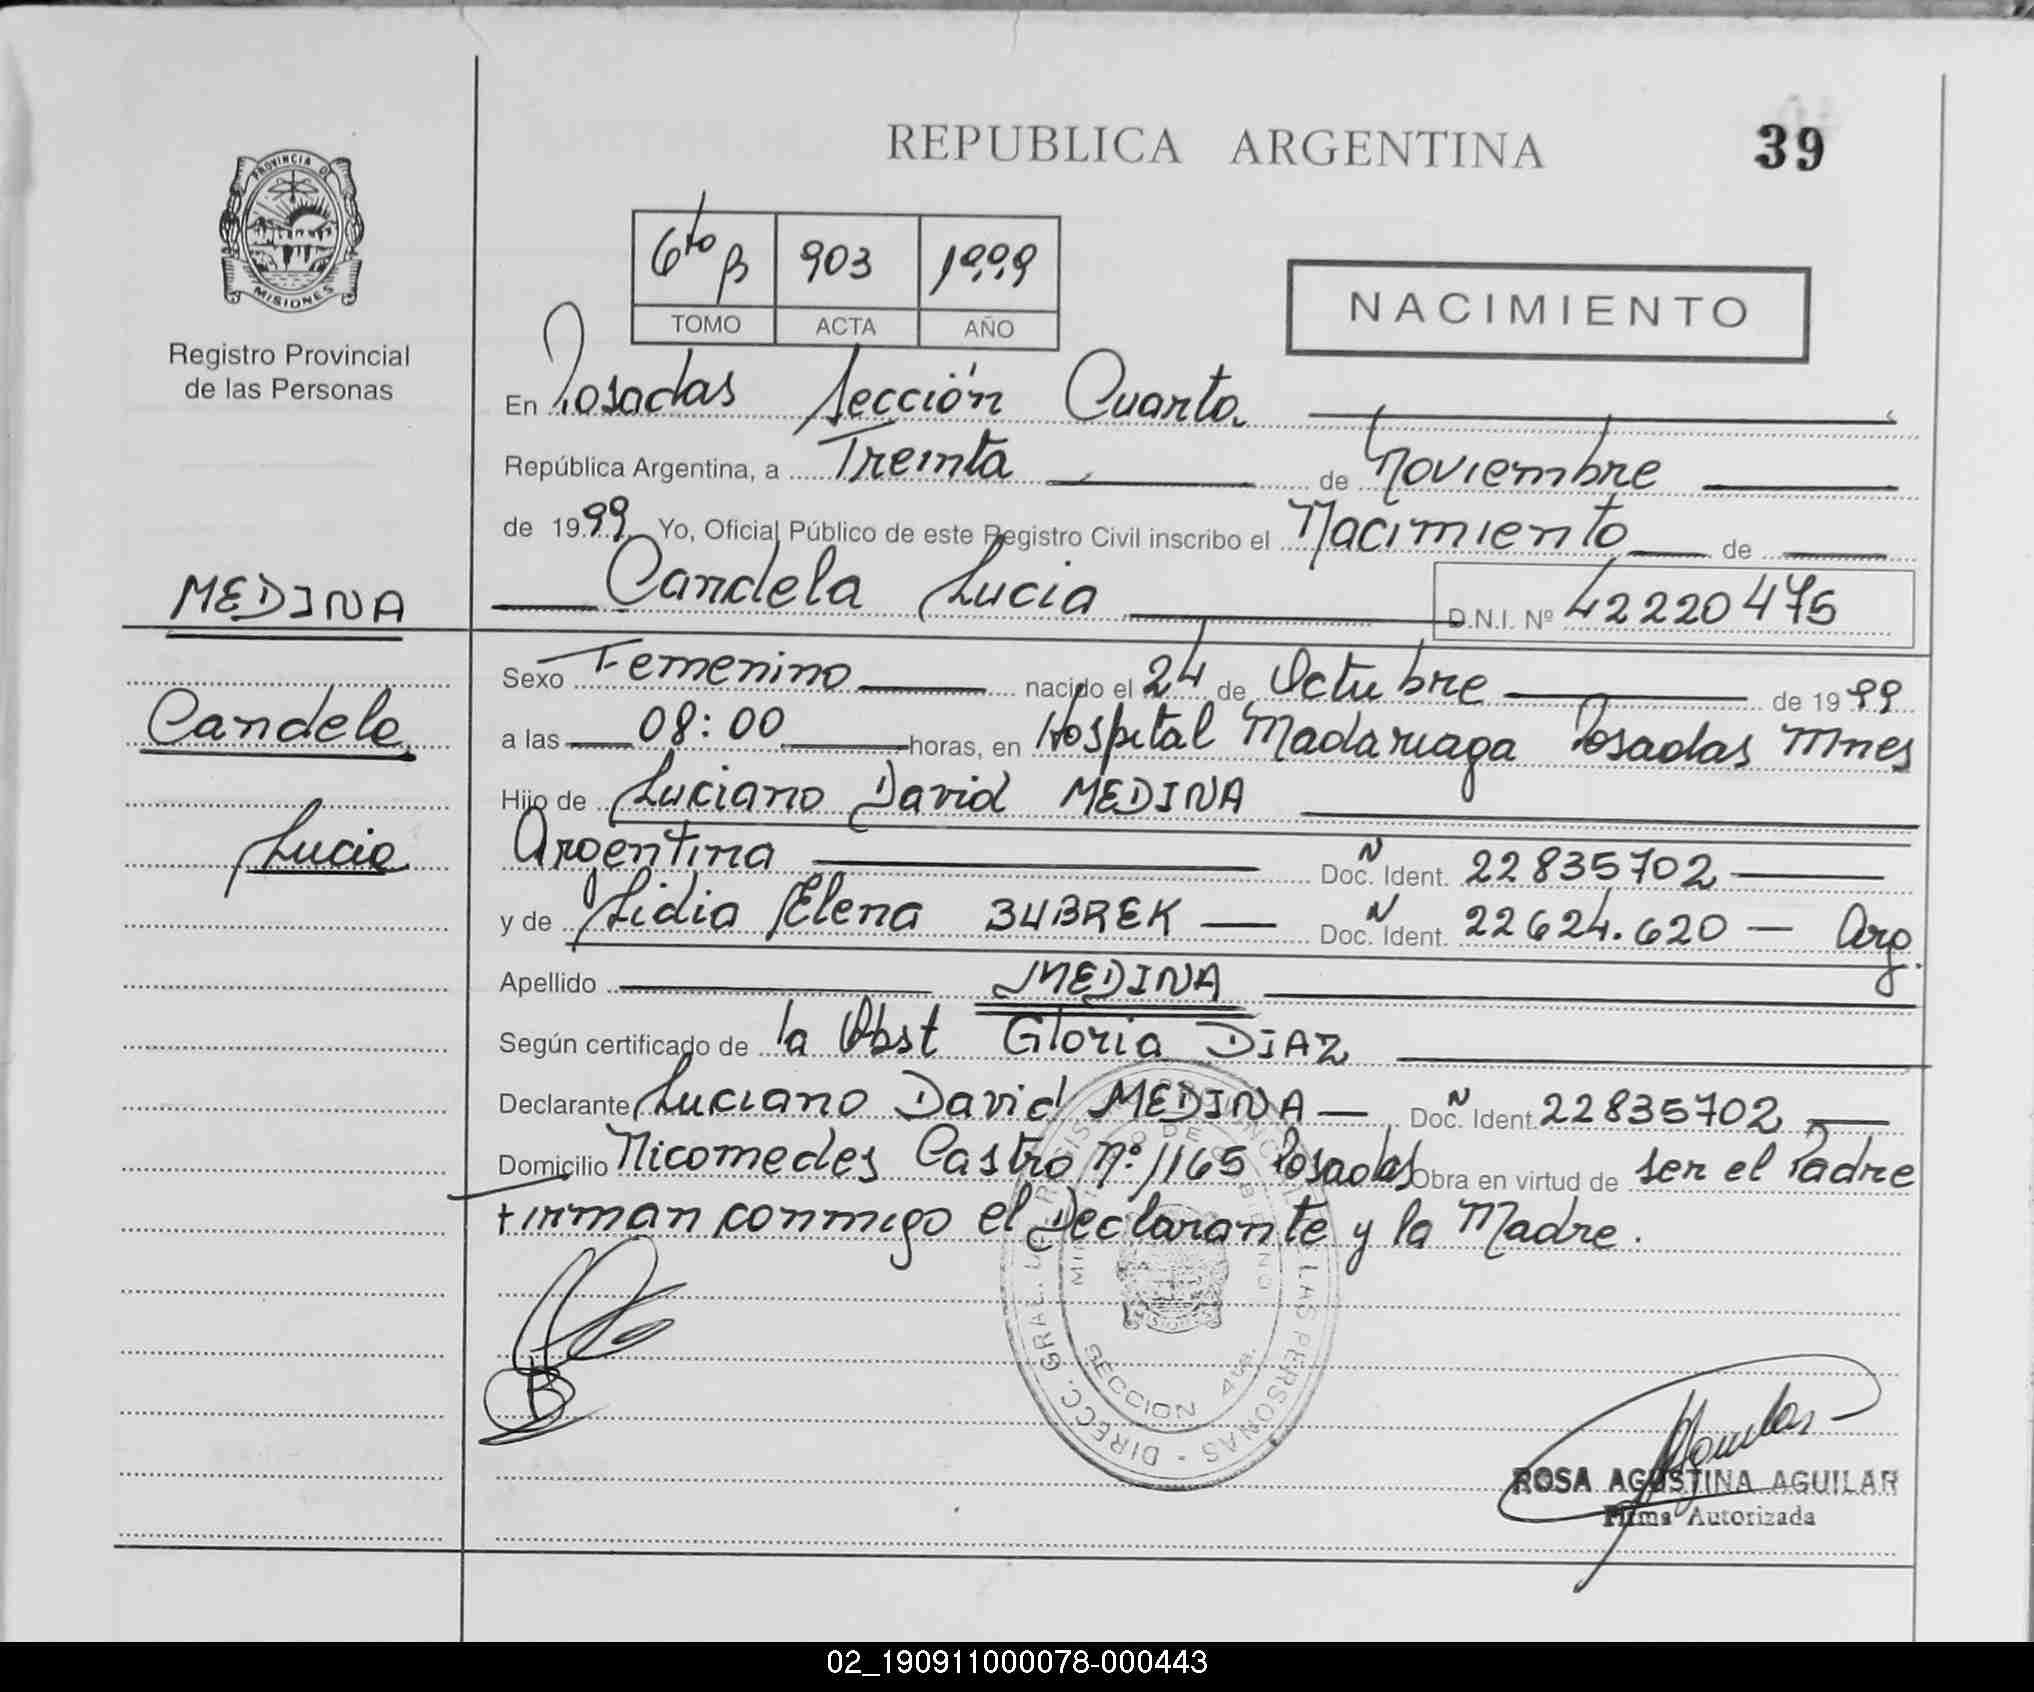 REPUBLICA ARGENTINA
39
PROVINCIA DE
MISIONES
Registro Provincial
de las Personas
6to B 903 1999
TOMO ACTA AÑO
NACIMIENTO
En Posadas Sección Cuarta
República Argentina, a Treinta de Noviembre
de 1999 Yo, Oficial Público de este Registro Civil inscribo el Nacimiento de
Candela Lucia D.N.I. Nº 42220475
MEDINA
Candela
Lucia
Sexo Femenino nacido el 24 de Octubre de 1999
a las 08:00 horas, en Hospital Madariaga Posadas Mnes
Hijo de Luciano David MEDINA
Argentina N Doc. Ident. 22835702
y de Lidia Elena BUBREK N Doc. Ident. 22624.620 Arg.
Apellido MEDINA
Según certificado de la Obst Gloria DiAZ
Declarante Luciano David MEDINA N Doc. Ident. 22835702
Domicilio Nicomedes Castro Nº 1165 Posadas Obra en virtud de ser el Padre
Firman conmigo el Declarante y la Madre.
DIRECC. GRAL. DEL REGISTRO PROVINCIAL DE LAS PERSONAS
MINISTERIO DE GOBIERNO
SECCION 4ta.
MISIONES
ROSA AGUSTINA AGUILAR
Firma Autorizada
02_190911000078-000443